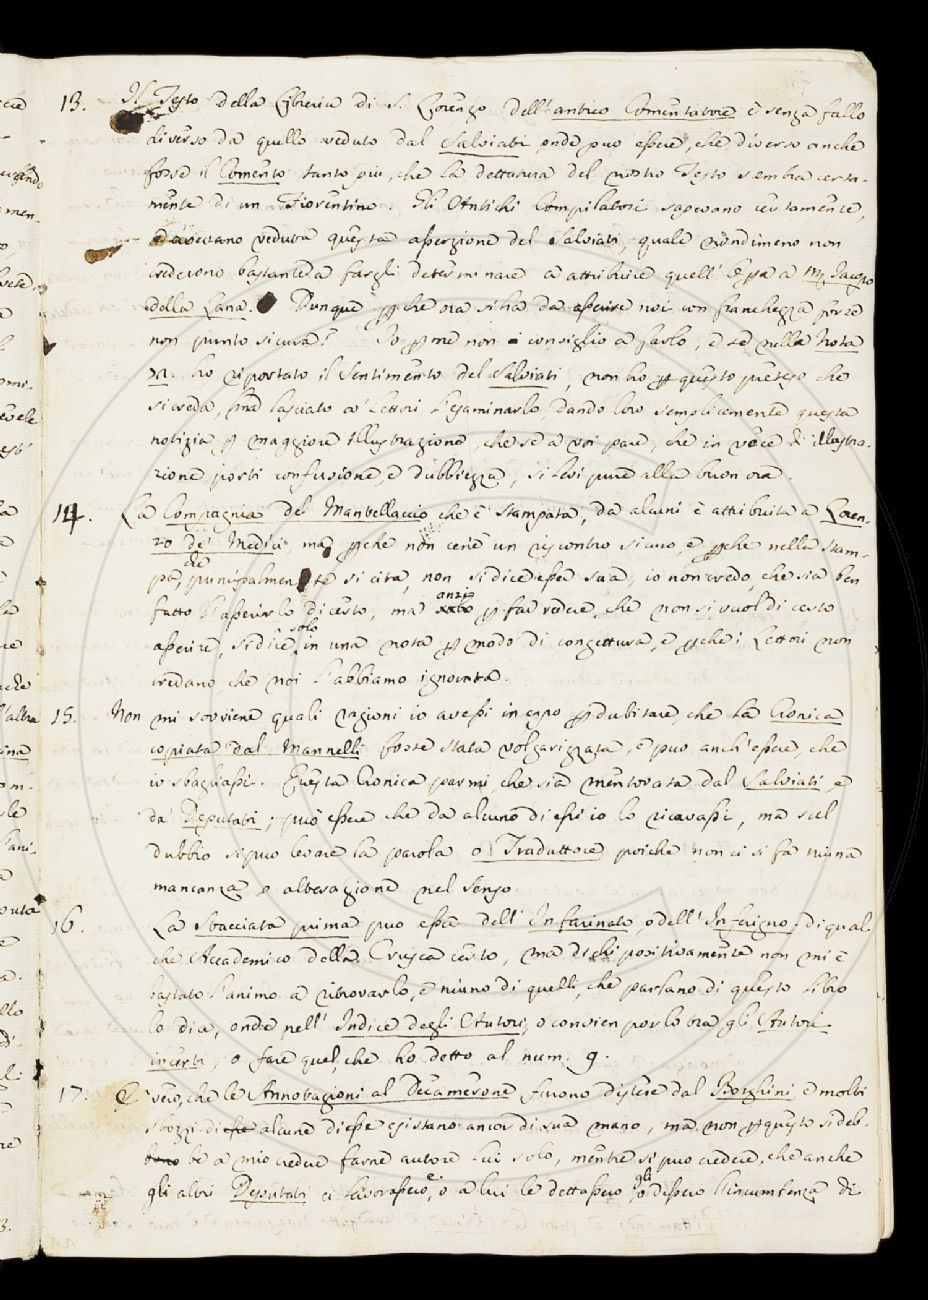 13. Il Testo della Libreria di S. Lorenzo dell'antico Comentatore è senza fallo
diverso da quello veduto dal Salviati, onde può essere, che diverso anche
fosse il Comento tanto più, che la dettatura del nostro Testo sembra certa-
mente di un Fiorentino. Gli Antichi Compilatori sapevano certamente,
ed avevano veduta questa asserzione del Salviati, quale nondimeno non
crederono bastante a fargli determinare a attribuire quell'
della Lana. Dunque che ora si ha da asserire noi con franchezza forse
non punto sicura? Io p me non consiglio a farlo, e se nella Nota
ho riportato il Sentimento del Salviati, non ho p questo preteso che
si creda, ma lasciato a' Lettori l'esaminarlo, dando loro semplicemente questa
notizia p maggiore Illustrazione, che se a voi pare, che in vece di illustra-
zione porti confusione, e dubbiezza, si levi pure alla buon'ora.
14. La Compagnia del Mantellaccio che è stampata, da alcuni è attribuita a Loren-
zo de' Medici, ma pche non cen'è un riscontro sicuro, e pche nella stam-
pa, che principalmente si cita, non si dice esser sua, io non credo, che sia ben
fatto l'asserirlo di certo, ma anzi p far vedere, che non si vuol di certo
asserire, si dice solo in una nota p modo di congettura, e pche i Lettori non
credano, che noi l'abbiamo ignorata.
15. Non mi sovviene quali ragioni io avessi in capo p dubitare, che la Cronica
copiata dal Mannelli fosse stata volgarizzata, e può anch'essere, che
io sbagliassi. Questa Cronica parmi che sia mentovata dal Salviati, e
da' Deputati; può essere che da alcuno di essi io lo ricavassi, ma sul
dubbio si può levare la parola o Traduttore poiche non ci si fa niuna
mancanza, o alterazione nel senso
16. La Stacciata prima può esser dell'Infarinato, o dell'Inferigno, di qual-
che Accademico della Crusca certo, ma di chi positivamente non mi è
bastato l'animo a ritrovarlo, e niuno di quelli, che parlano di questo Libro
lo dice, onde nell'Indice degli Autori, o convien porlo tra gli Autori
incerti, o fare quel, che ho detto al num. 9.
17. È vero, che le Annotazioni al Decamerone furono distese dal Borghini, e molti
sbozzi di alcune di esse esistano ancor di sua mano, ma non p questo si deb-
be a mio credere farne autore lui solo, mentre si può credere, che anche
gli altri Deputati ci lavorassero, e o a lui le dettassero, o gli dessero l'incumbenza di